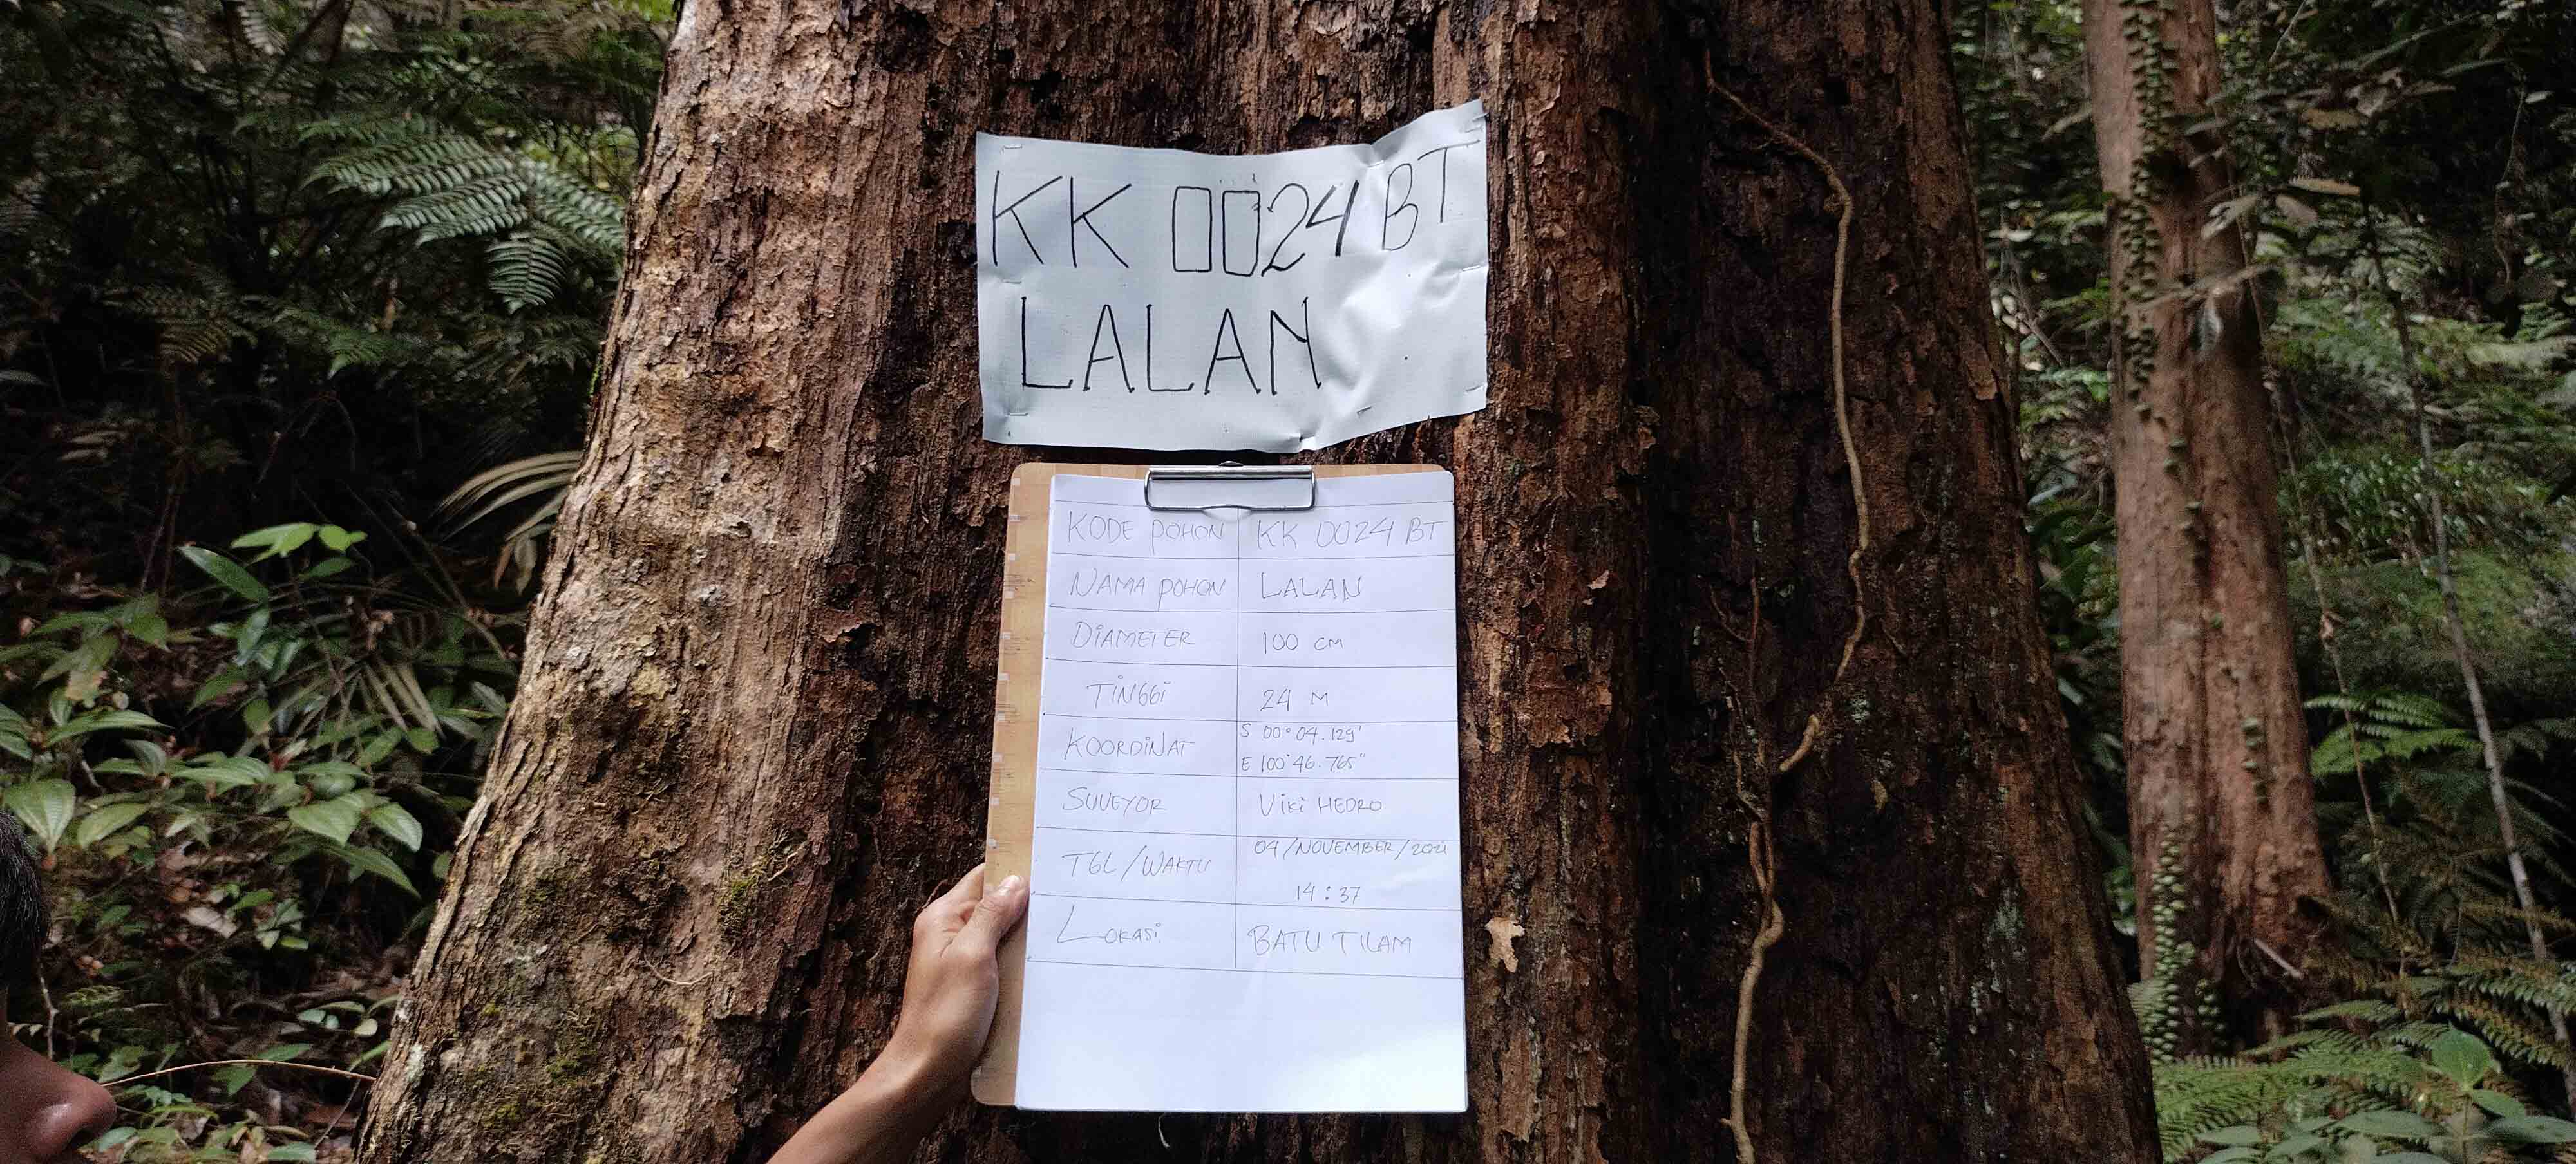 KK 0024 BT
LALAN
KODE POHON KK 0024 BT
NAMA POHON LALAN
DIAMETER 100 CM
TINGGI 24 M
KOORDINAT S 00° 04.129'
E 100° 46.765"
SUVEYOR VIKI HEDRO
TGL/WAKTU 04/NOVEMBER/2021
14:37
LOKASI BATU TILAM